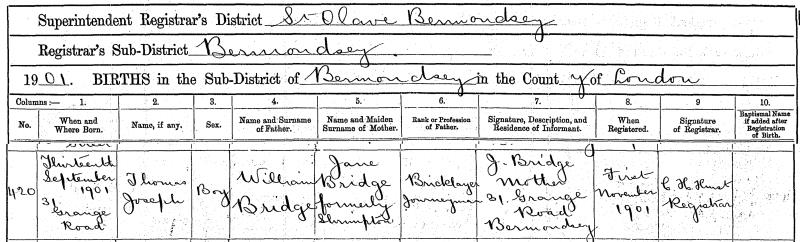 Superintendent Registrar's District St Olave Bermondsey
Registrar's Sub-District Bermondsey.
1901. BIRTHS in the Sub-District of Bermondsey in the County of London
Columns:— 1. 2. 3. 4. 5. 6. 7. 8. 9 10.
No. When and Where Born. Name, if any. Sex. Name and Surname of Father. Name and Maiden Surname of Mother. Rank or Profession of Father. Signature, Description, and Residence of Informant. When Registered. Signature of Registrar. Baptismal Name if added after Registration of Birth.
420
Thirteenth
September
1901
31
Grange
Road
Thomas
Joseph
Boy
William
Bridge
Jane
Bridge
formerly
Shrimpton
Bricklayer
Journeyman
J. Bridge
Mother
31. Grange
Road
Bermondsey
First
November
1901
C. H. Hurst
Registrar